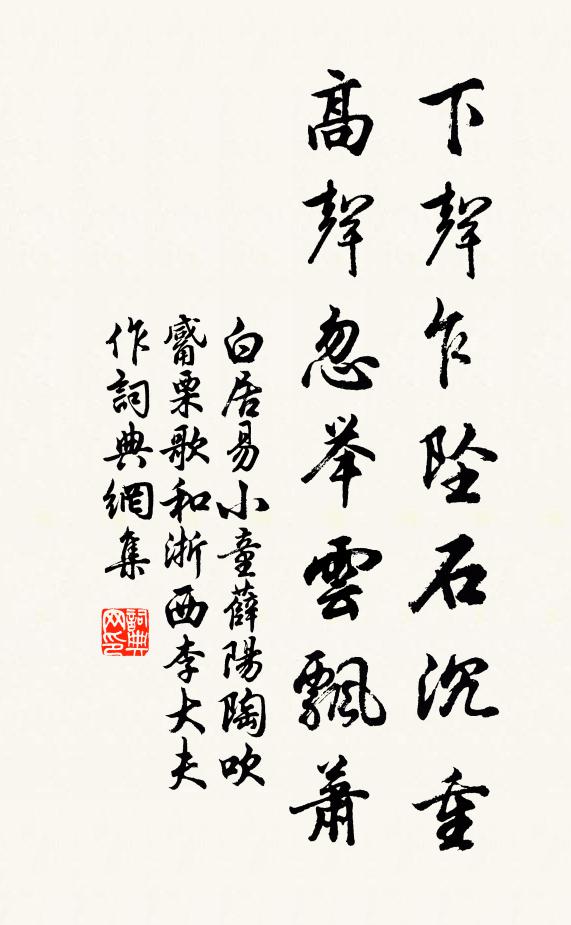 下聲乍坠石沉重
高聲忽举雲飄萧
白居易小童薛陽陶吹
觱栗歌和浙西李大夫
作詞典網集
詞典
网印